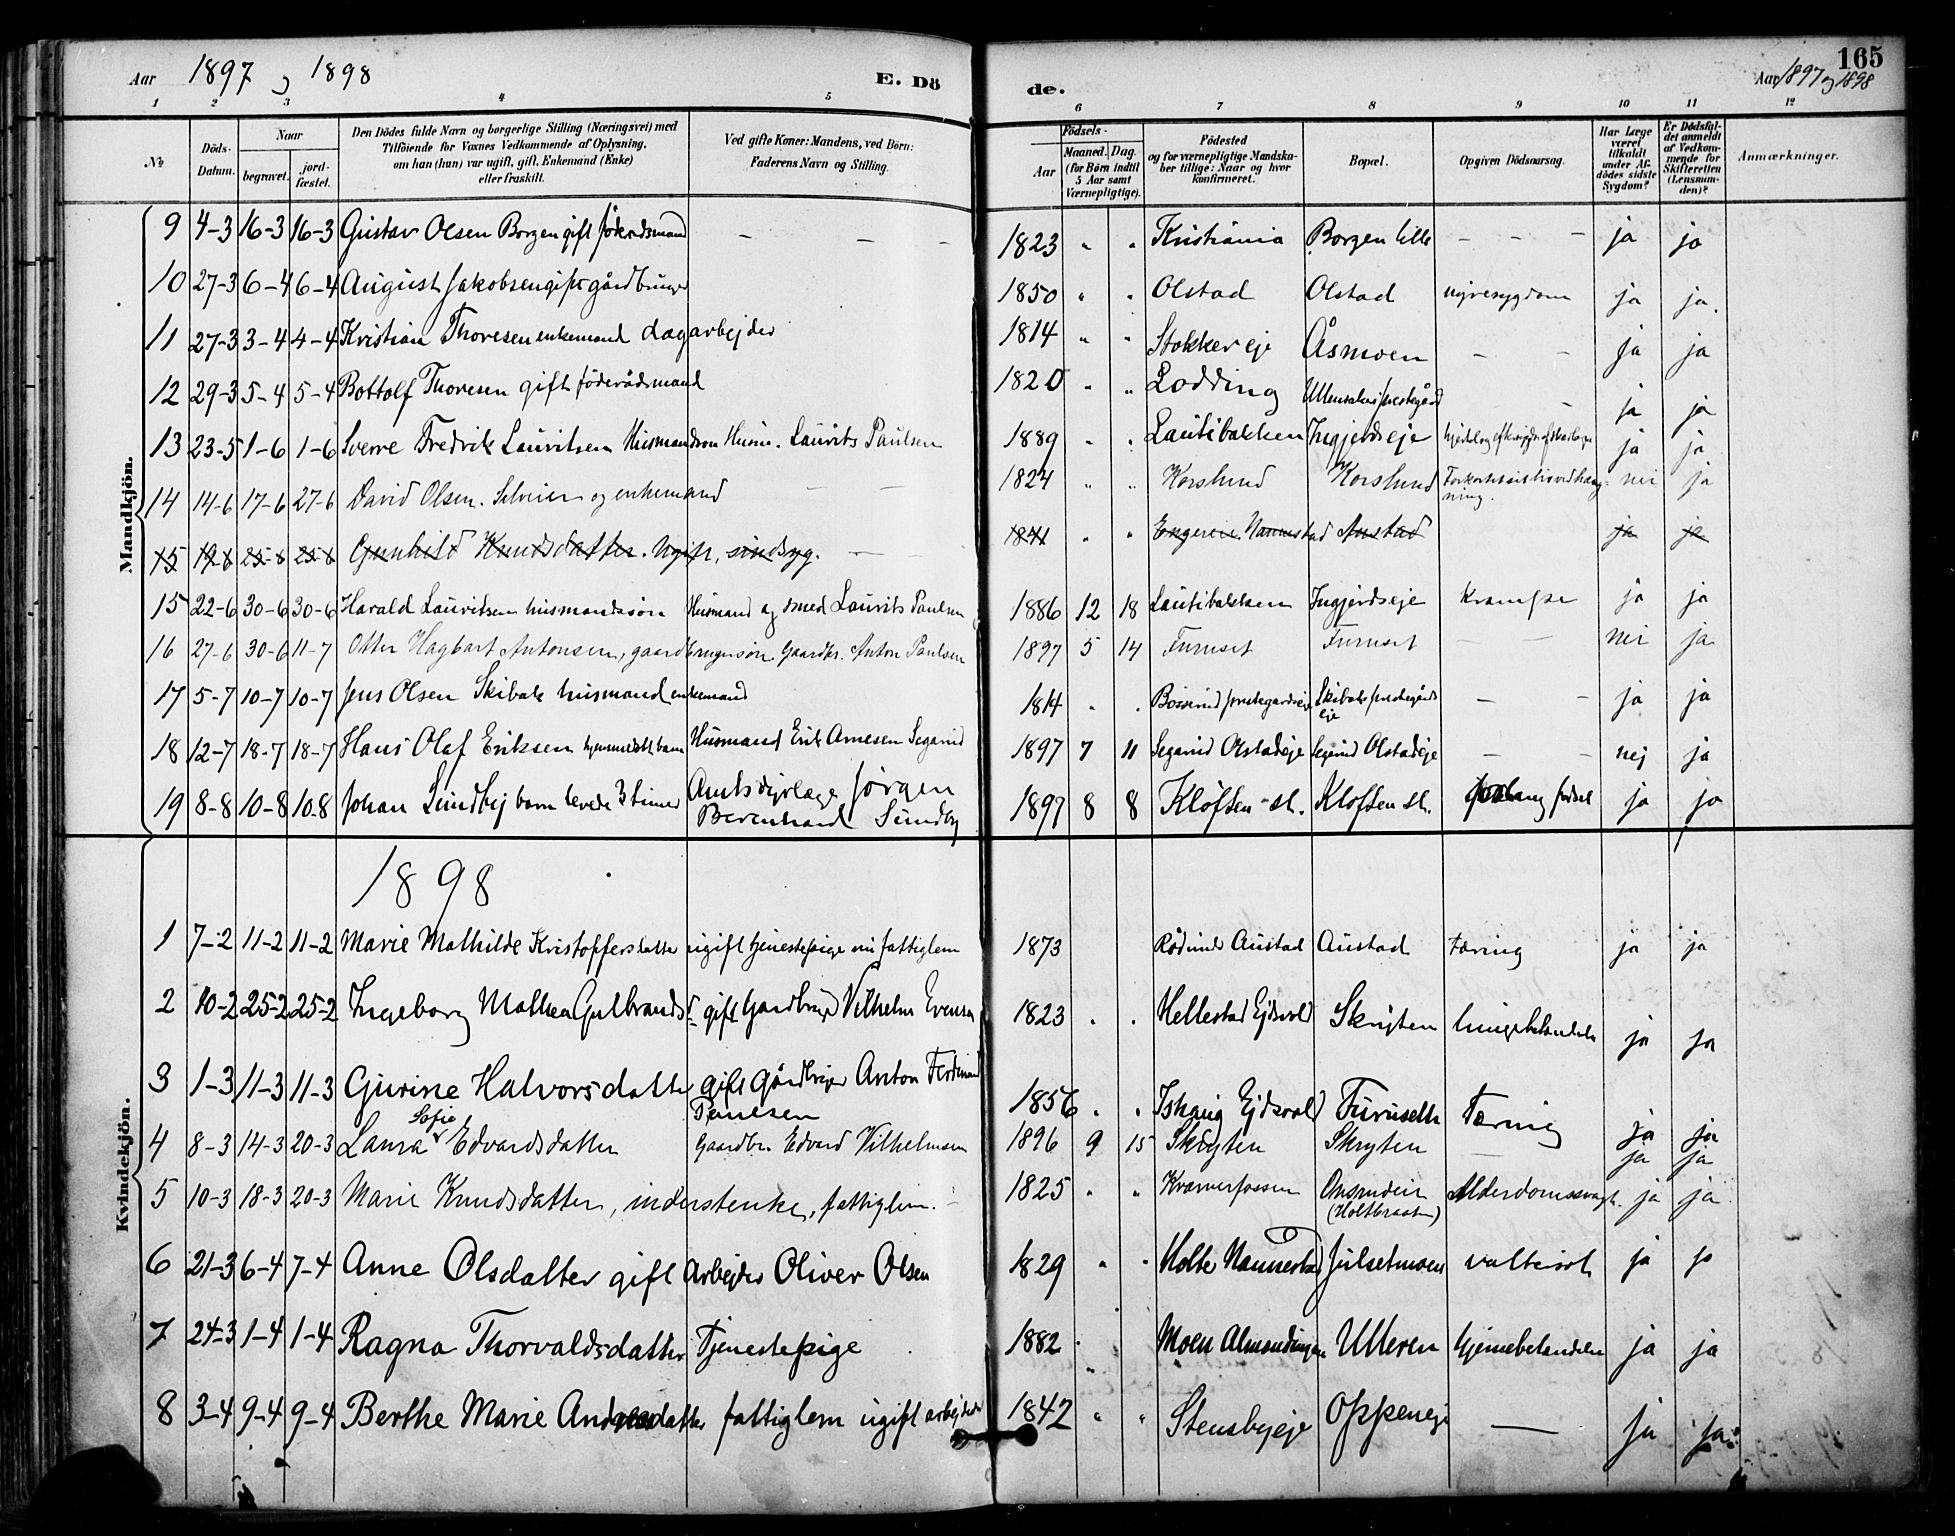 165
Aar 1897 og 1898 E. Dö
de. Aar 1897 og 1898
1 2 3 4 5 6 7 8 9 10 11 12
No Döds-Datum. Naar begravet. jord-fæstet. Den Dödes fulde Navn og borgerlige Stilling (Næringsvei) med Tilföiende for Voxnes Vedkommende af Oplysning, om han (hun) var ugift, gift, Enkemand (Enke) eller fraskilt. Ved gifte Koner: Mandens, ved Börn: Faderens Navn og Stilling. Födsels- Aar Maaned. Dag. (for Börn indtil 5 Aar samt Værnepligtige). Födested og for værnepligtige Mandskaber tillige: Naar og hvor konfirmeret. Bopæl. Opgiven Dödsaarsag. Har Læge været tilkaldt under Afdödes sidste Sygdom? Er Dödsfaldet anmeldt af Vedkommende for Skifteretten (Lensmanden)? Anmærkninger.
Mandkjön.
9 4-3 16-3 16-3 Gustav Olsen Borgen gift föderådsmand - - - 1823 " " Kristiania Borgen lille - - - ja ja
10 27-3 6-4 6-4 August Jakobsen gift gårdbruger 1850 " " Olstad Olstad nyresygdom ja ja.
11 27-3 3-4 4-4 Kristian Thoresen enkemand dagarbejder 1814 " " Stokker eje Åsmoen - - ja ja
12 29-3 5-4 5-4 Bottolf Thoresen gift föderådsmand 1820 " " Lodding Ullensaker prestegård - ja ja
13 23-5 1-6 1-6 Sverre Fredrik Lauritsen Husmandssøn Husm. Laurits Paulsen 1889 " " Lautibakken Ingjerdseje ja ja
14 14-6 17-6 27-6 David Olsen. Selveier og enkemand - - 1824 " " Korslund Korslund Forkortet sit liv ved hængning. nei ja
15 19-6 25-6 25-6 Gunhild Knudsdatter. Ugift, sindsyg. - - 1841 " " Engereie. Nannestad Austad ja ja
15 22-6 30-6 30-6 Harald Lauritsen husmandssön Husmand og smed Laurits Paulsen 1886 12 18 Lautibakken Ingjerdseje Krampe ja ja
16 27-6 30-6 11-7 Otter Hagbart Antonsen, gaardbrugersön Gaardbr. Anton Paulsen 1897 5 14 Furuset Furuset - - nei ja
17 5-7 10-7 10-7 Jens Olsen Skibak husmand enkemand 1814 " " prestegardseje Skibak prestegårds eje - - ja ja
18 12-7 18-7 18-7 Hans Olaf Eriksen hjemmedöbt barn Husmand Erik Arnesen Segarud 1897 7 11 Segarud Olstadeje Segarud Olstadeje - - nej ja
19 8-8 10-8 10-8 Johan Sundby barn levede 3 timer Amtsdyrlæge Jörgen Berenhard Sundby 1897 8 8 Klöften st. Klöften st. födsel ja ja
1898
Kvindekjön.
1 7-2 11-2 11-2 Marie Mathilde Kristoffersdatter ugift tjenestepige nu fattiglem 1873 Rödmer Austad Austad Tæring ja ja
2 10-2 25-2 25-2 Ingeborg Mathea Gulbrands d. gift Gardbruger Vilhelm Evensen 1823 " " Hellestad Ejdsvold Skryten lungebetændelse ja ja
3 1-3 11-3 11-3 Gurine Halvorsdatter gift gårdbruger Anton Ferdinand Paulsen 1856 " " Ishaug Ejdsvold Furuseth Tæring ja ja
4 8-3 14-3 20-3 Laura Sofie Edvardsdatter Gaardbr. Edvard Vilhelmsen 1896 9 15 Skryten Skryten - ja ja
5 10-3 18-3 20-3 Marie Knudsdatter, inderstenke, fattiglem. - 1825 " " Kværnerfossen Onsrudeie (Holtbraaten) Alderdomssvagh. ja ja
6 21-3 6-4 7-4 Anne Olsdatter gift Arbejder Oliver Olsen 1829 " " Holter Nannestad Julsetmoen vattersot ja ja
7 24-3 1-4 1-4 Ragna Thorvaldsdatter Tjenestepige 1882 " " Moen Almendingen Ulleren hjernebetændelse ja ja
8 3-4 9-4 9-4 Berthe Marie Andreasdatter fattiglem ugift 1842 " " Stensbyeje Oppeneje - ja ja